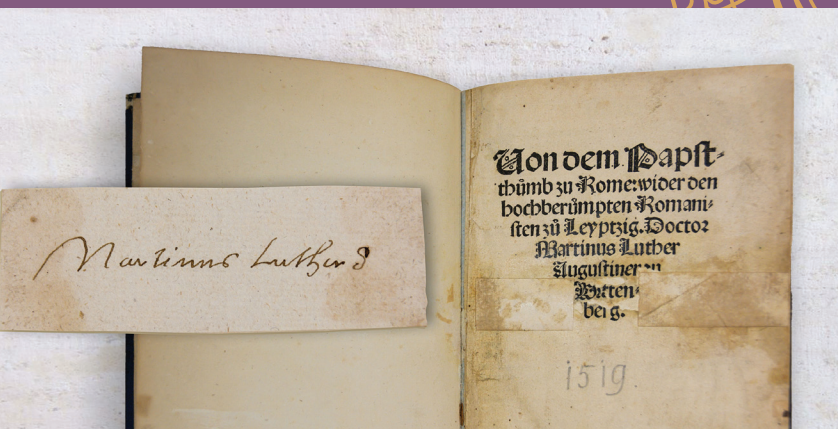 Martinus Luther D
Von dem Papst-
thůmb zu Rome: wider den
hochberůmpten Romani-
sten zů Leyptzig. Doctor
Martinus Luther
Augustiner zu
Witten-
berg.
1519